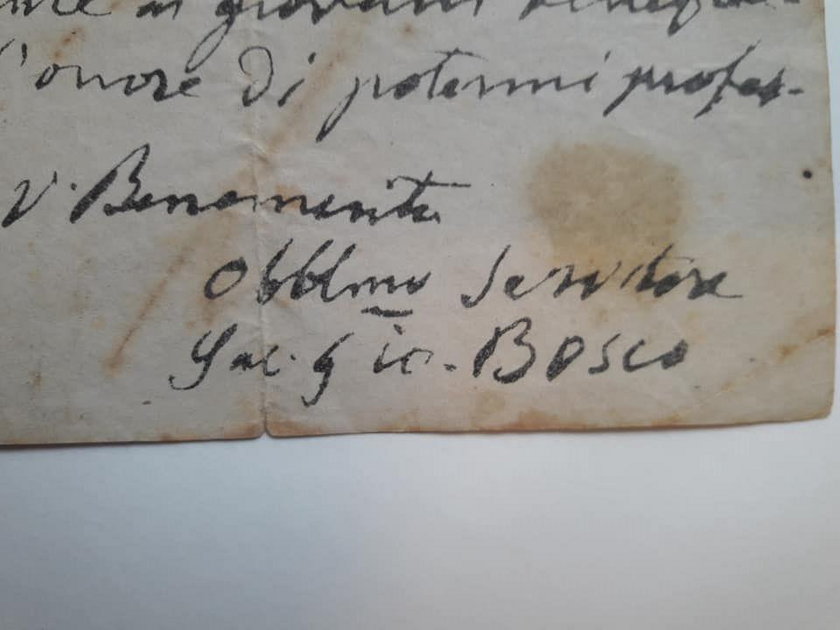 ai giovani
l'onore di potermi profes-
V. Benemerita
Obblmo Servitore
Sac. Gio. Bosco